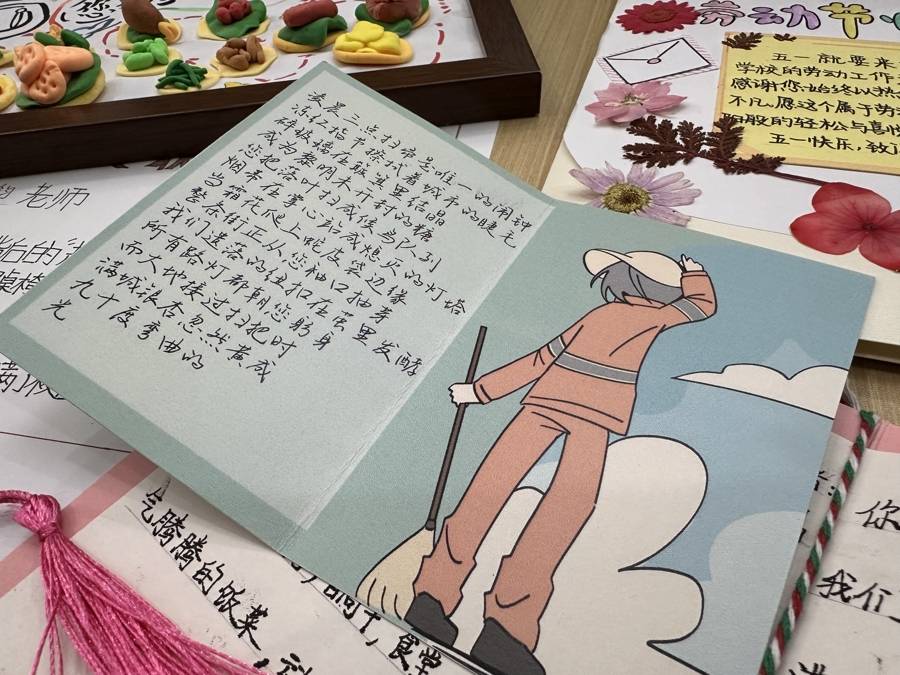 劳动节
五一就要来
学校的劳动工作
感谢您始终以热
不凡.愿这个属于劳
阳般的轻松与喜
五一快乐,致
老师
后的
凌晨三点扫帚是唯一的闹钟
冻红指节擦拭着城市的睫毛
碎玻璃在簸箕里结晶
成为黎明未拆封的糖
您把落叶扫成候鸟队列
烟蒂在掌心蜷成熄灭的灯塔
当霜花爬上蛇皮袋边缘
整条街正从您袖口抽芽
我们遗落的纽扣在茧里发酵
所有路灯都朝您躬身
而大地接过扫把时
满城银杏忽然黄成
九十度弯曲的
光
气腾腾的饭菜
食堂
你
我们